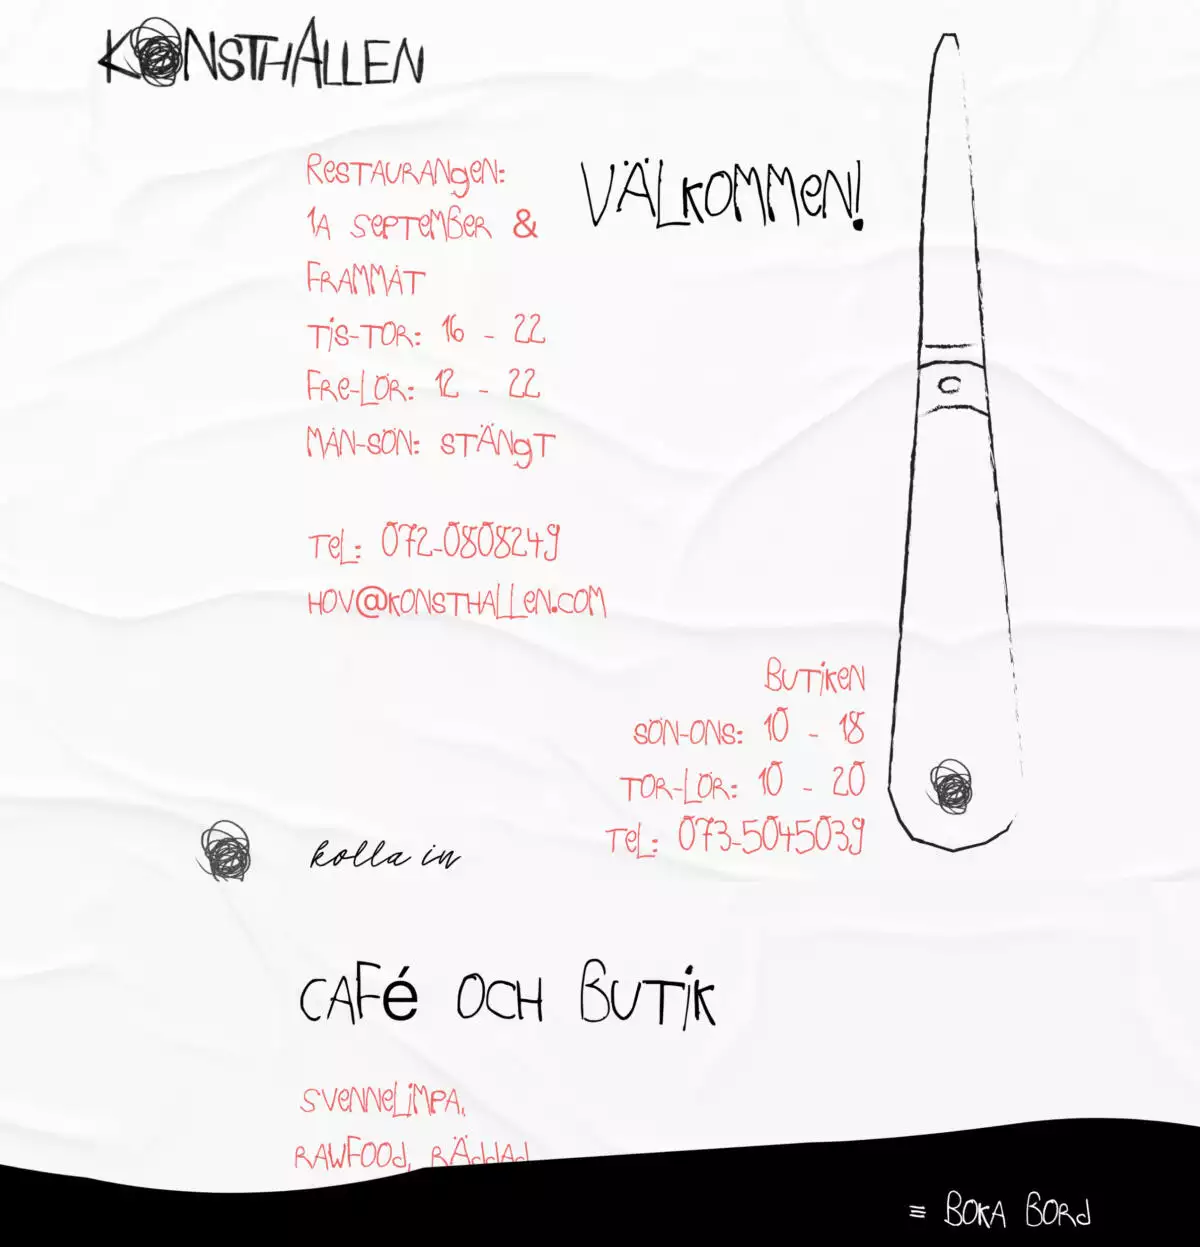 KONSTHALLEN
RESTAURANGEN:
1A SEPTEMBER &
FRAMMÅT
TIS-TOR: 16 - 22
FRE-LÖR: 12 - 22
MÅN-SÖN: STÄNGT
TEL: 072-0808249
HOV@KONSTHALLEN.COM
VÄLKOMMEN!
BUTIKEN
SÖN-ONS: 10 - 18
TOR-LÖR: 10 - 20
TEL: 073-5045039
kolla in
CAFÉ OCH BUTIK
SVENNELIMPA,
RAWFOOD, RÄDDAD
≡ BOKA BORD